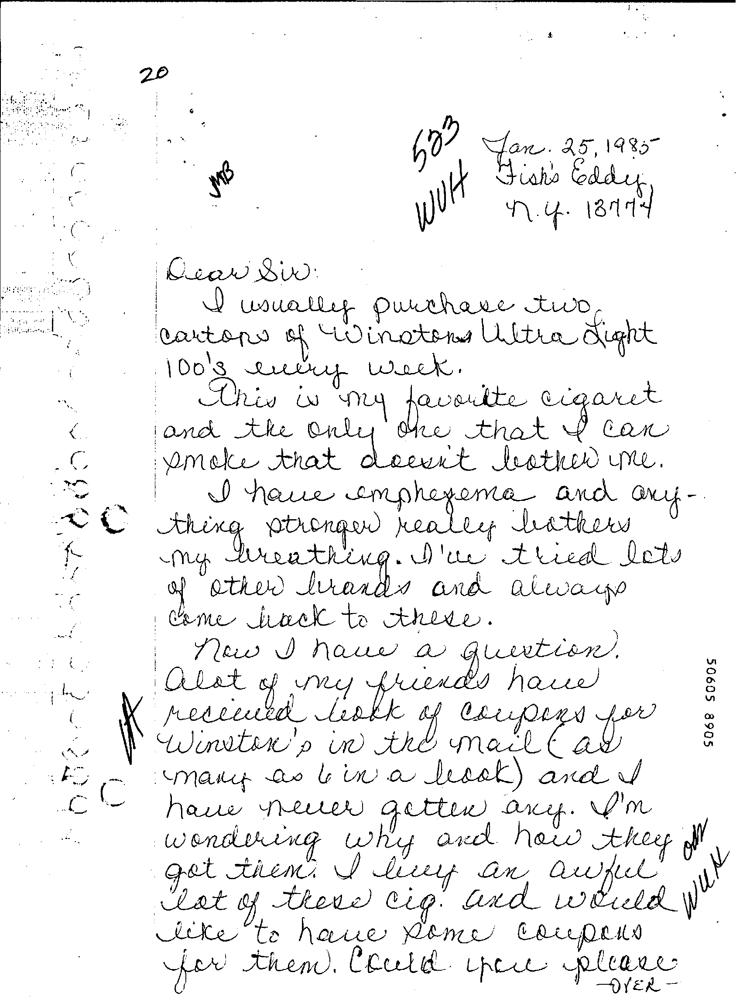 20
523
JMB
WUH
Jan. 25, 1985
Fish's Eddy,
N.Y. 13774
Dear Sir:
I usually purchase two
cartons of Winstons Ultra Light
100's every week.
This is my favorite cigaret
and the only one that I can
smoke that doesn't bother me.
I have emphezema and any-
thing stronger really bothers
my breathing. I've tried lots
of other brands and always
come back to these.
Now I have a question.
Alot of my friends have
received book of coupons for
Winston's in the mail (as
many as 6 in a book) and I
have never gotten any. I'm
wondering why and how they
got them. I buy an awful
lot of these cig. and would
like to have some coupons
for them. Could you please
-OVER-
WUH
50605 8905